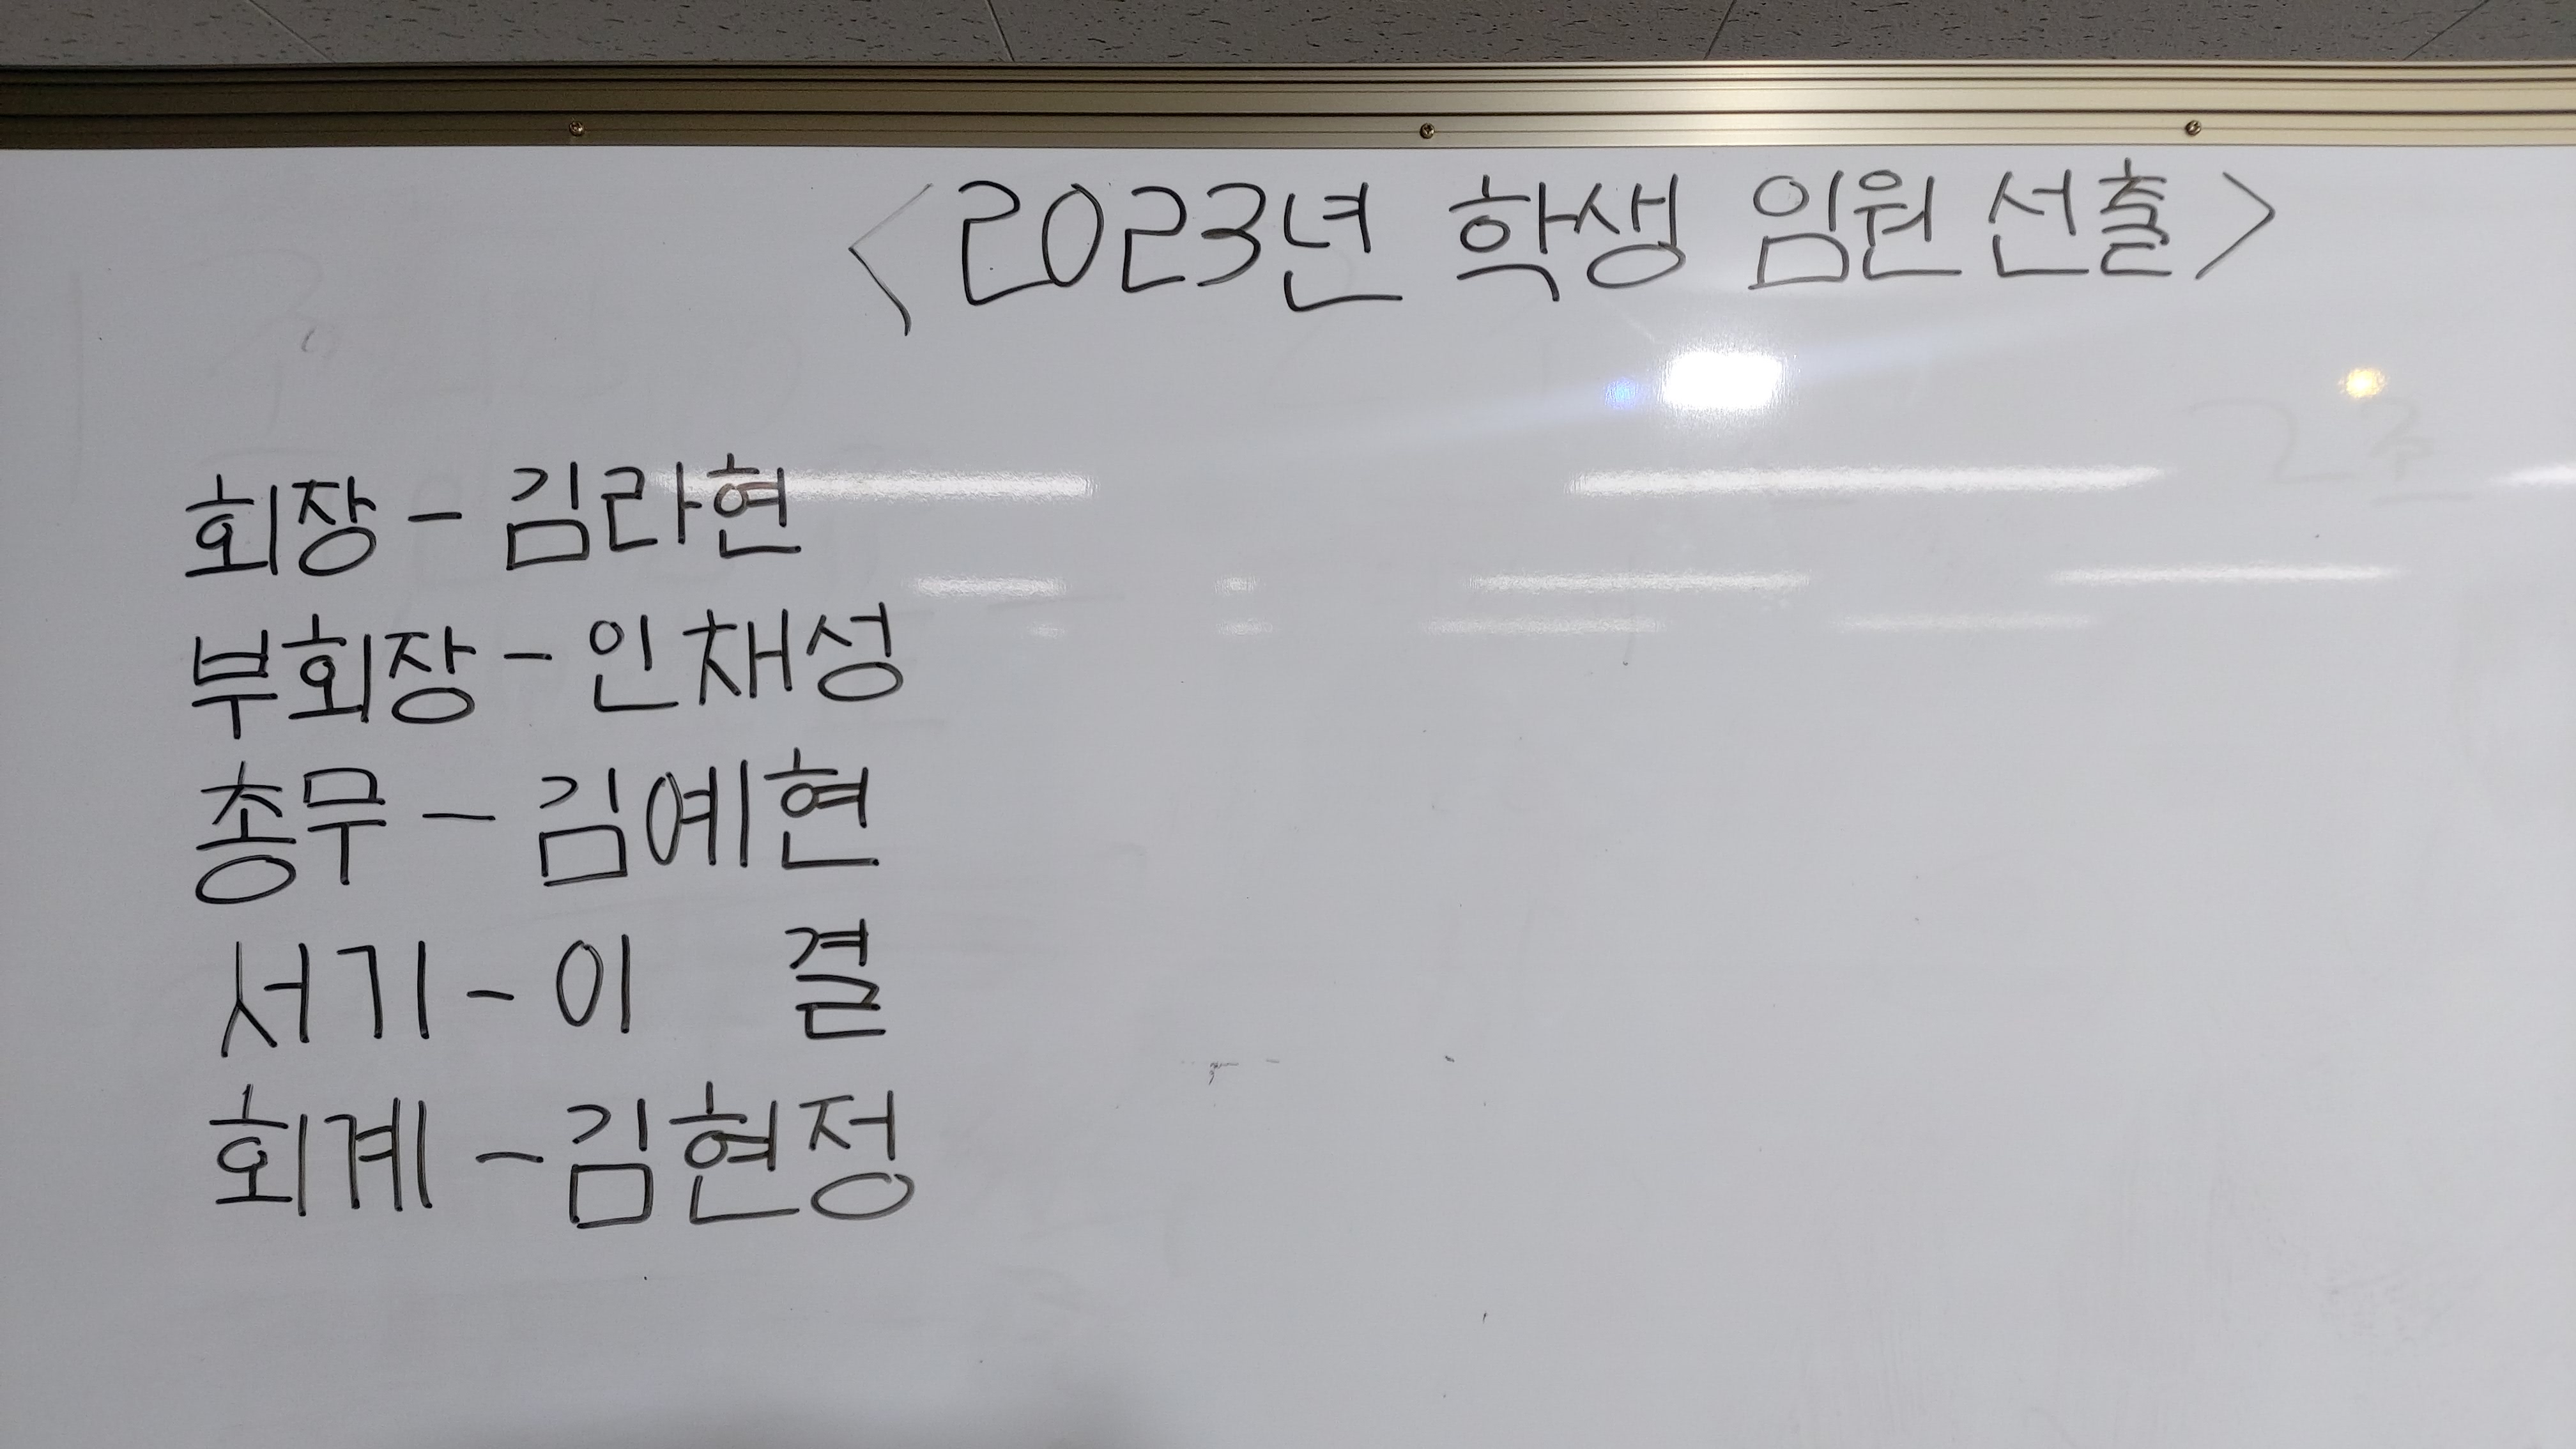 <2023년 학생 임원 선출>
회장 - 김라현
부회장 - 인채성
총무 - 김예현
서기 - 이 결
회계 - 김현정